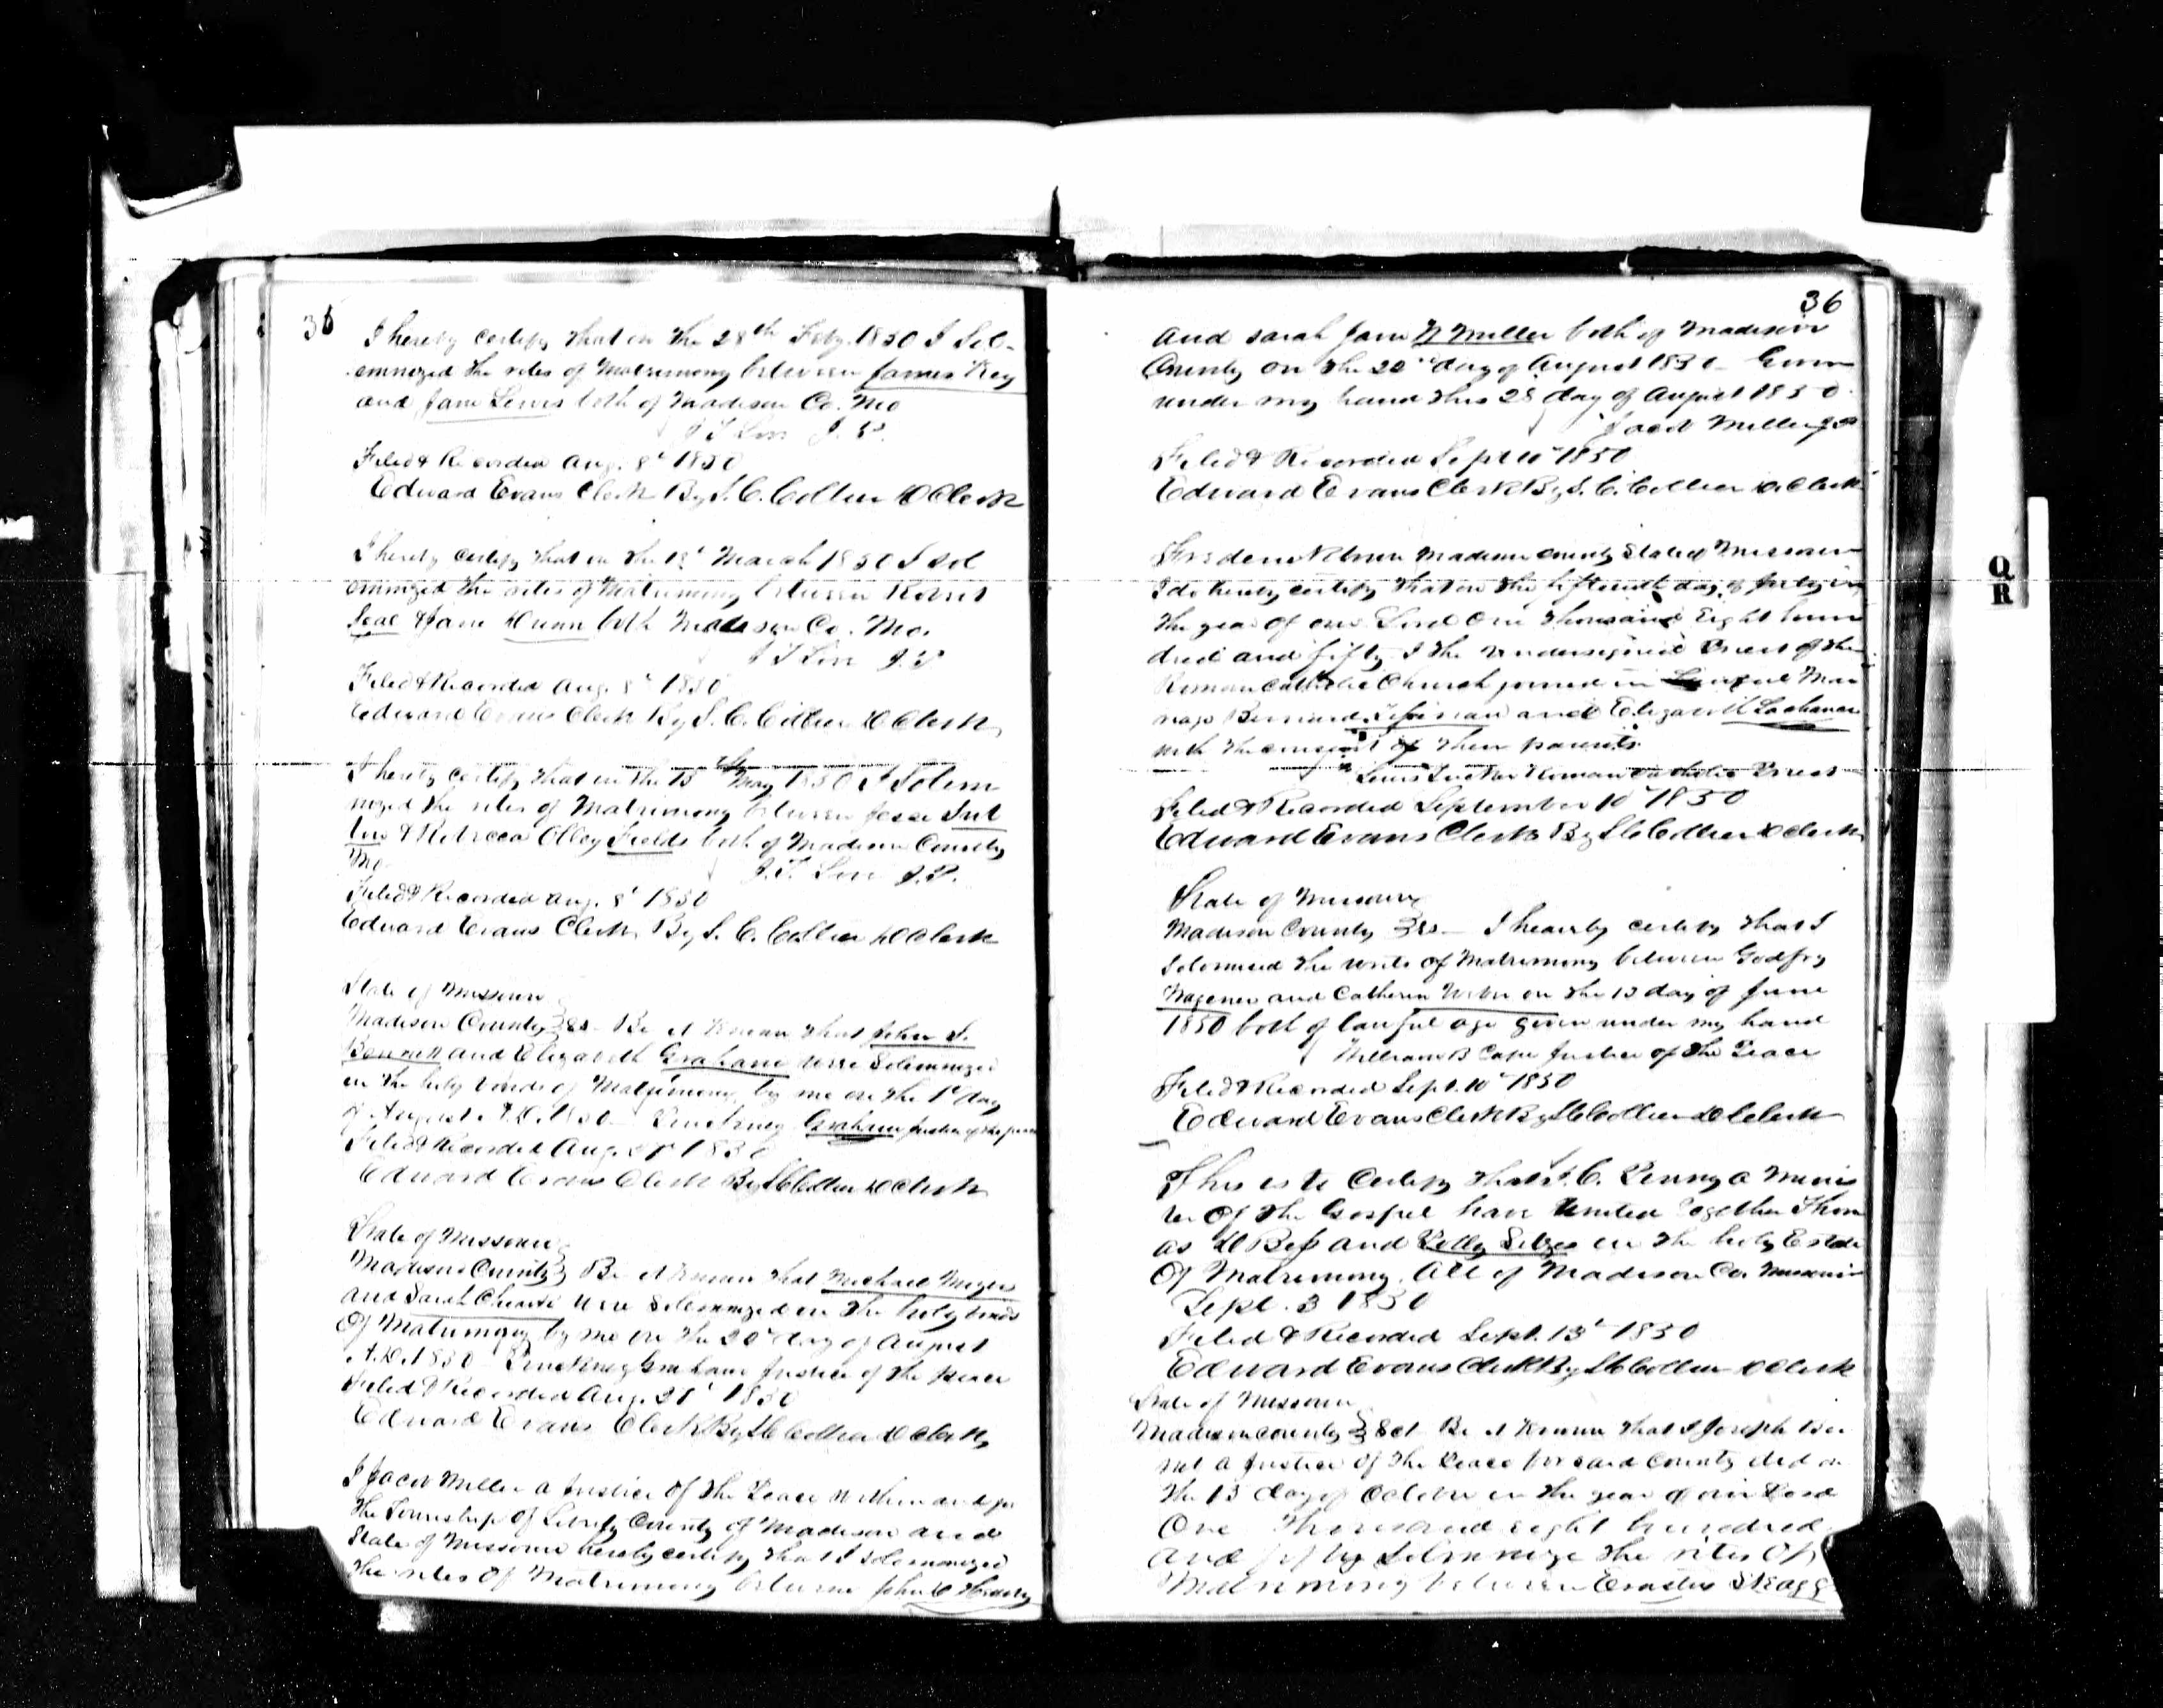 36
I hereby certify that on the 28th Feby. 1850 I Sol-
emnized the rites of Matrimony between James Key
and Jane Lewis both of Madison Co. Mo
J. P.
Filed & Recorded Aug. 8" 1850
Edward Evans Clerk By S. C. Collier D Clerk
I hereby certify that on the March 1850 I sol
emnized the rites of Matrimony between Robert
& Jane both Madison Co. Mo.
J. P.
Filed & Recorded Aug. 8" 1850
Edward Evans Clerk By S. C. Collier D Clerk
I hereby certify that on the 15th May 1850 I Solem
nized the rites of Matrimony between Jesse
& Rebecca Fields both of Madison County
Mo.
J. P.
Filed & Recorded Aug. 8" 1850
Edward Evans Clerk By S. C. Collier D Clerk
State of Missouri
Madison County Be it Known that John S.
Bennett and Elizabeth Graham were Solemnized
in the holy bonds of Matrimony by me on the 1st day
of August A. D. 1850 Pinckney Graham Justice of the peace
Filed & Recorded Aug. 1850
Edward Evans Clerk By S C Collier D Clerk
State of Missouri
Madison County Be it Known that Michael
and Sarah were Solemnized in the holy bonds
Of Matrimony by me on the 20" day of August
A. D. 1850 Pinckney Graham Justice of the peace
Filed & Recorded Aug. 21" 1850
Edward Evans Clerk By S C Collier D Clerk
I Jacob Miller a Justice Of the Peace within and for
the Township of Liberty County of Madison and
State of Missouri hereby certify that I solemnized
the rites Of Matrimony between John
36
and Sarah Jane N Miller both of Madison
County on the day of August 1850 Given
under my hand this 28 day of August 1850.
Jacob Miller JP
Filed & Recorded Sept 10" 1850
Edward Evans Clerk By S. C. Collier D. Clerk
Fredericktown Madison County State of Missouri
I do hereby certify that on the fifteenth day of July in
the year of our Lord One thousand Eight hun
dred and fifty I the undersigned Priest of the
Roman Catholic Church joined in Lawful Mar
riage Bernard and Elizabeth Lachance
with the consent of their parents
Lewis Roman Catholic Priest
Filed & Recorded September 10" 1850
Edward Evans Clerk By S C Collier D Clerk
State of Missouri
Madison County I hearby certify that I
Solomnised the writs of Matrimony between Godfry
Wagener and Catherin on the 13 day of June
1850 both of lawful age given under my hand
William B Justice of the Peace
Filed & Recorded Sept. 10" 1850
Edward Evans Clerk By S C Collier D Clerk
This is to Certify that C. Penny a Minis
ter Of the Gospel have United Together Thom
as and in the holy Estate
Of Matrimony. All of Madison Co. Missouri
Sept. 3 1850
Filed & Recorded Sept. 13" 1850
Edward Evans Clerk By S C Collier D Clerk
State of Missouri
Madison County Sct Be it Known that I Joseph Ben
net a Justice Of the Peace for said County did on
the 13 day of October in the year of our Lord
One Thousand eight hundred
and fifty Solemnize the rites Of
Matrimony between Erastus Skaggs
Q
R